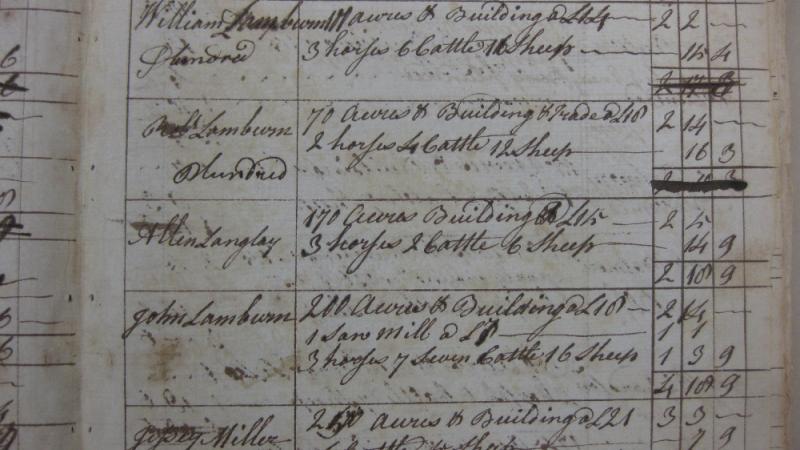 William Lamburn 117 acres & Building a £14 — 2 2 —
Plundred 3 horses 6 Cattle 16 Sheep — 15 4
Robt Lamburn 70 Acres & Building & Trade a £18 2 14 —
2 horses 4 Cattle 12 Sheep — 16 3
Plundred
Allen Langlay 170 Acres Building a £15 2 5
3 horses 2 Cattle 6 Sheep — 14 9
2 18 9
John Lamburn 200 Acres & Building a £18 — 2 14 —
1 Saw Mill a 1 1
3 horses 7 Seven Cattle 16 Sheep 1 3 9
4 18 9
Miller acres & Building a £21 3 3 —
7 9